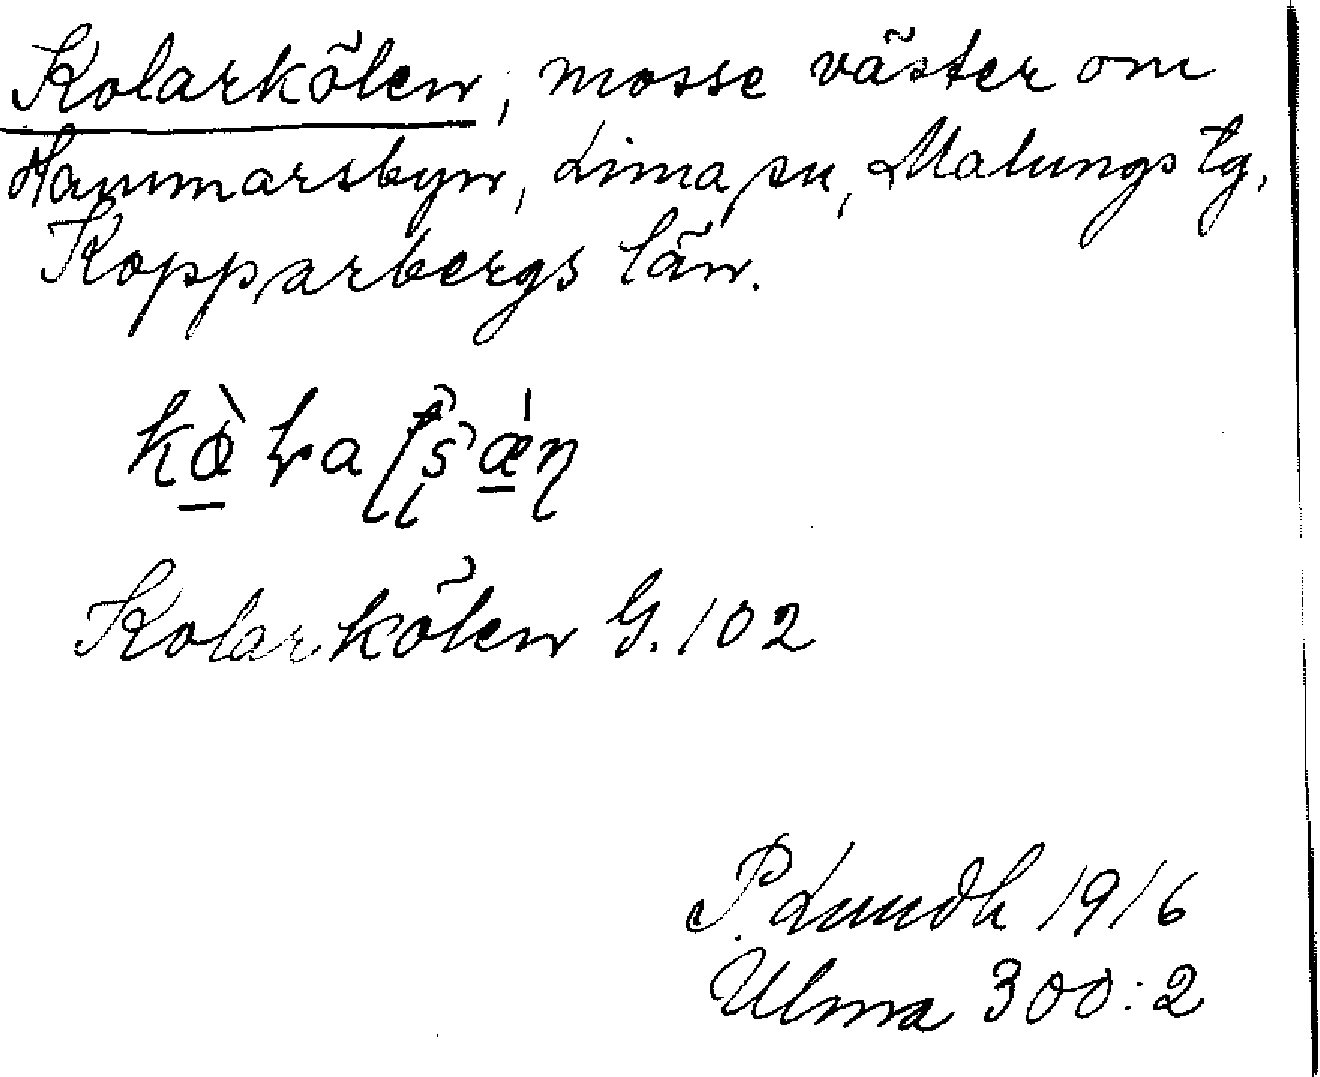 Kolarkölen, mosse väster om
Hammarsbyn, Lima sn, Malungs tg,
Kopparbergs län.
Kolarkölen G. 102
P. Lundh 1916
Ulma 300:2